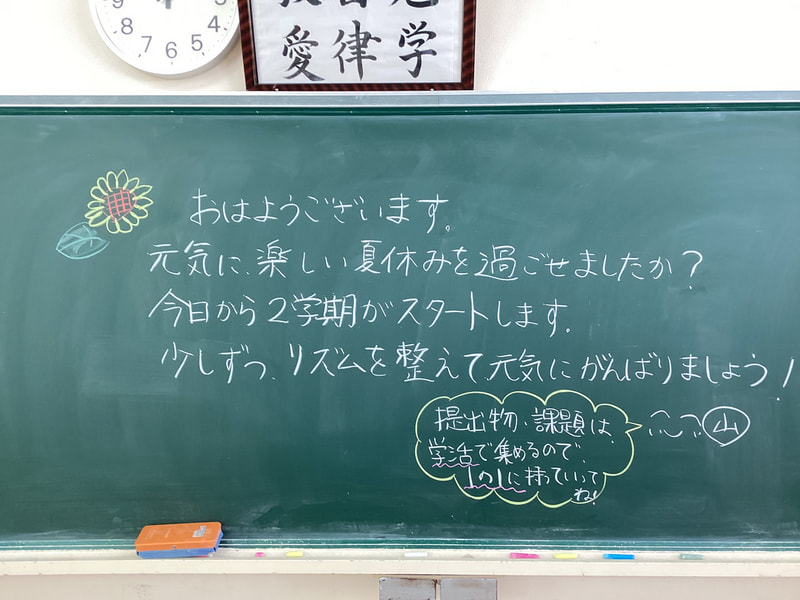 9 8 7 6 5 4
愛 律 学
おはようございます。
元気に、楽しい夏休みを過ごせましたか?
今日から2学期がスタートします。
少しずつ、リズムを整えて元気にがんばりましょう!
提出物、課題は、
学活で集めるので、
1の1に持っていって
ね!
山